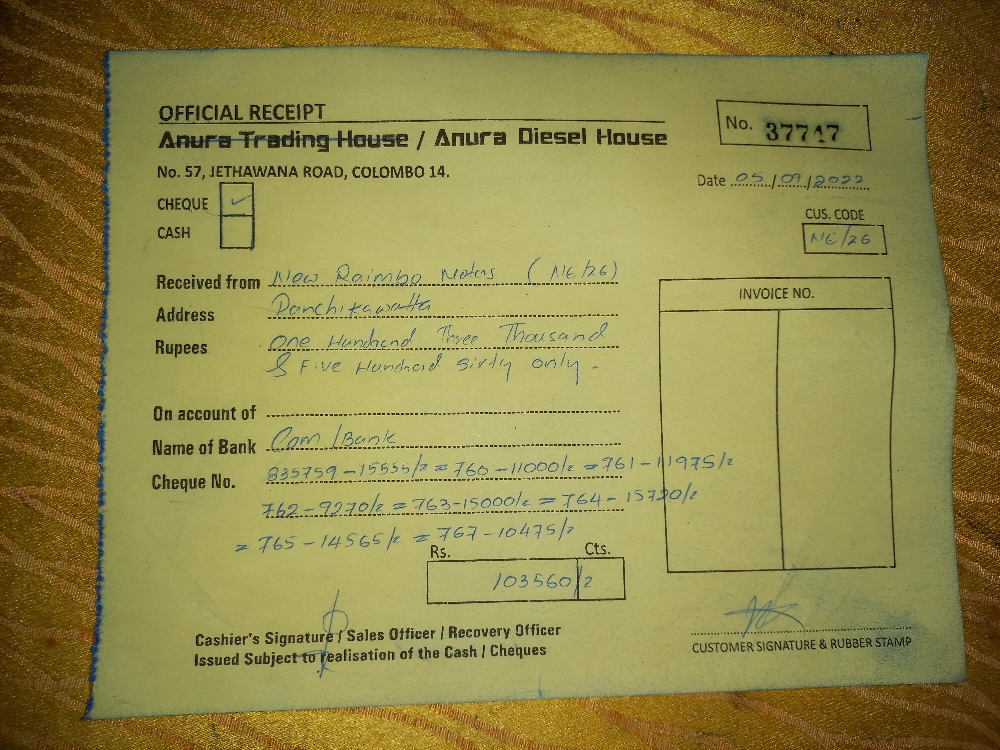 OFFICIAL RECEIPT
Anura Trading House / Anura Diesel House
No. 37747
No. 57, JETHAWANA ROAD, COLOMBO 14.
Date 05/09/2022
CHEQUE ✓
CASH
CUS. CODE
NE/26
Received from New Raimbo Motas (NE/26)
Address Panchikawatta
Rupees One Hundred Three Thousand
& Five Hundred Sixty only.
INVOICE NO.
On account of
Name of Bank Com/Bank
Cheque No. 835759-15555/= 760-11000/= 761-11975/=
762-9270/= 763-15000/= 764-15720/=
= 765-14565/= 767-10475/=
Rs. Cts.
103560/=
Cashier's Signature / Sales Officer / Recovery Officer
Issued Subject to realisation of the Cash / Cheques
CUSTOMER SIGNATURE & RUBBER STAMP